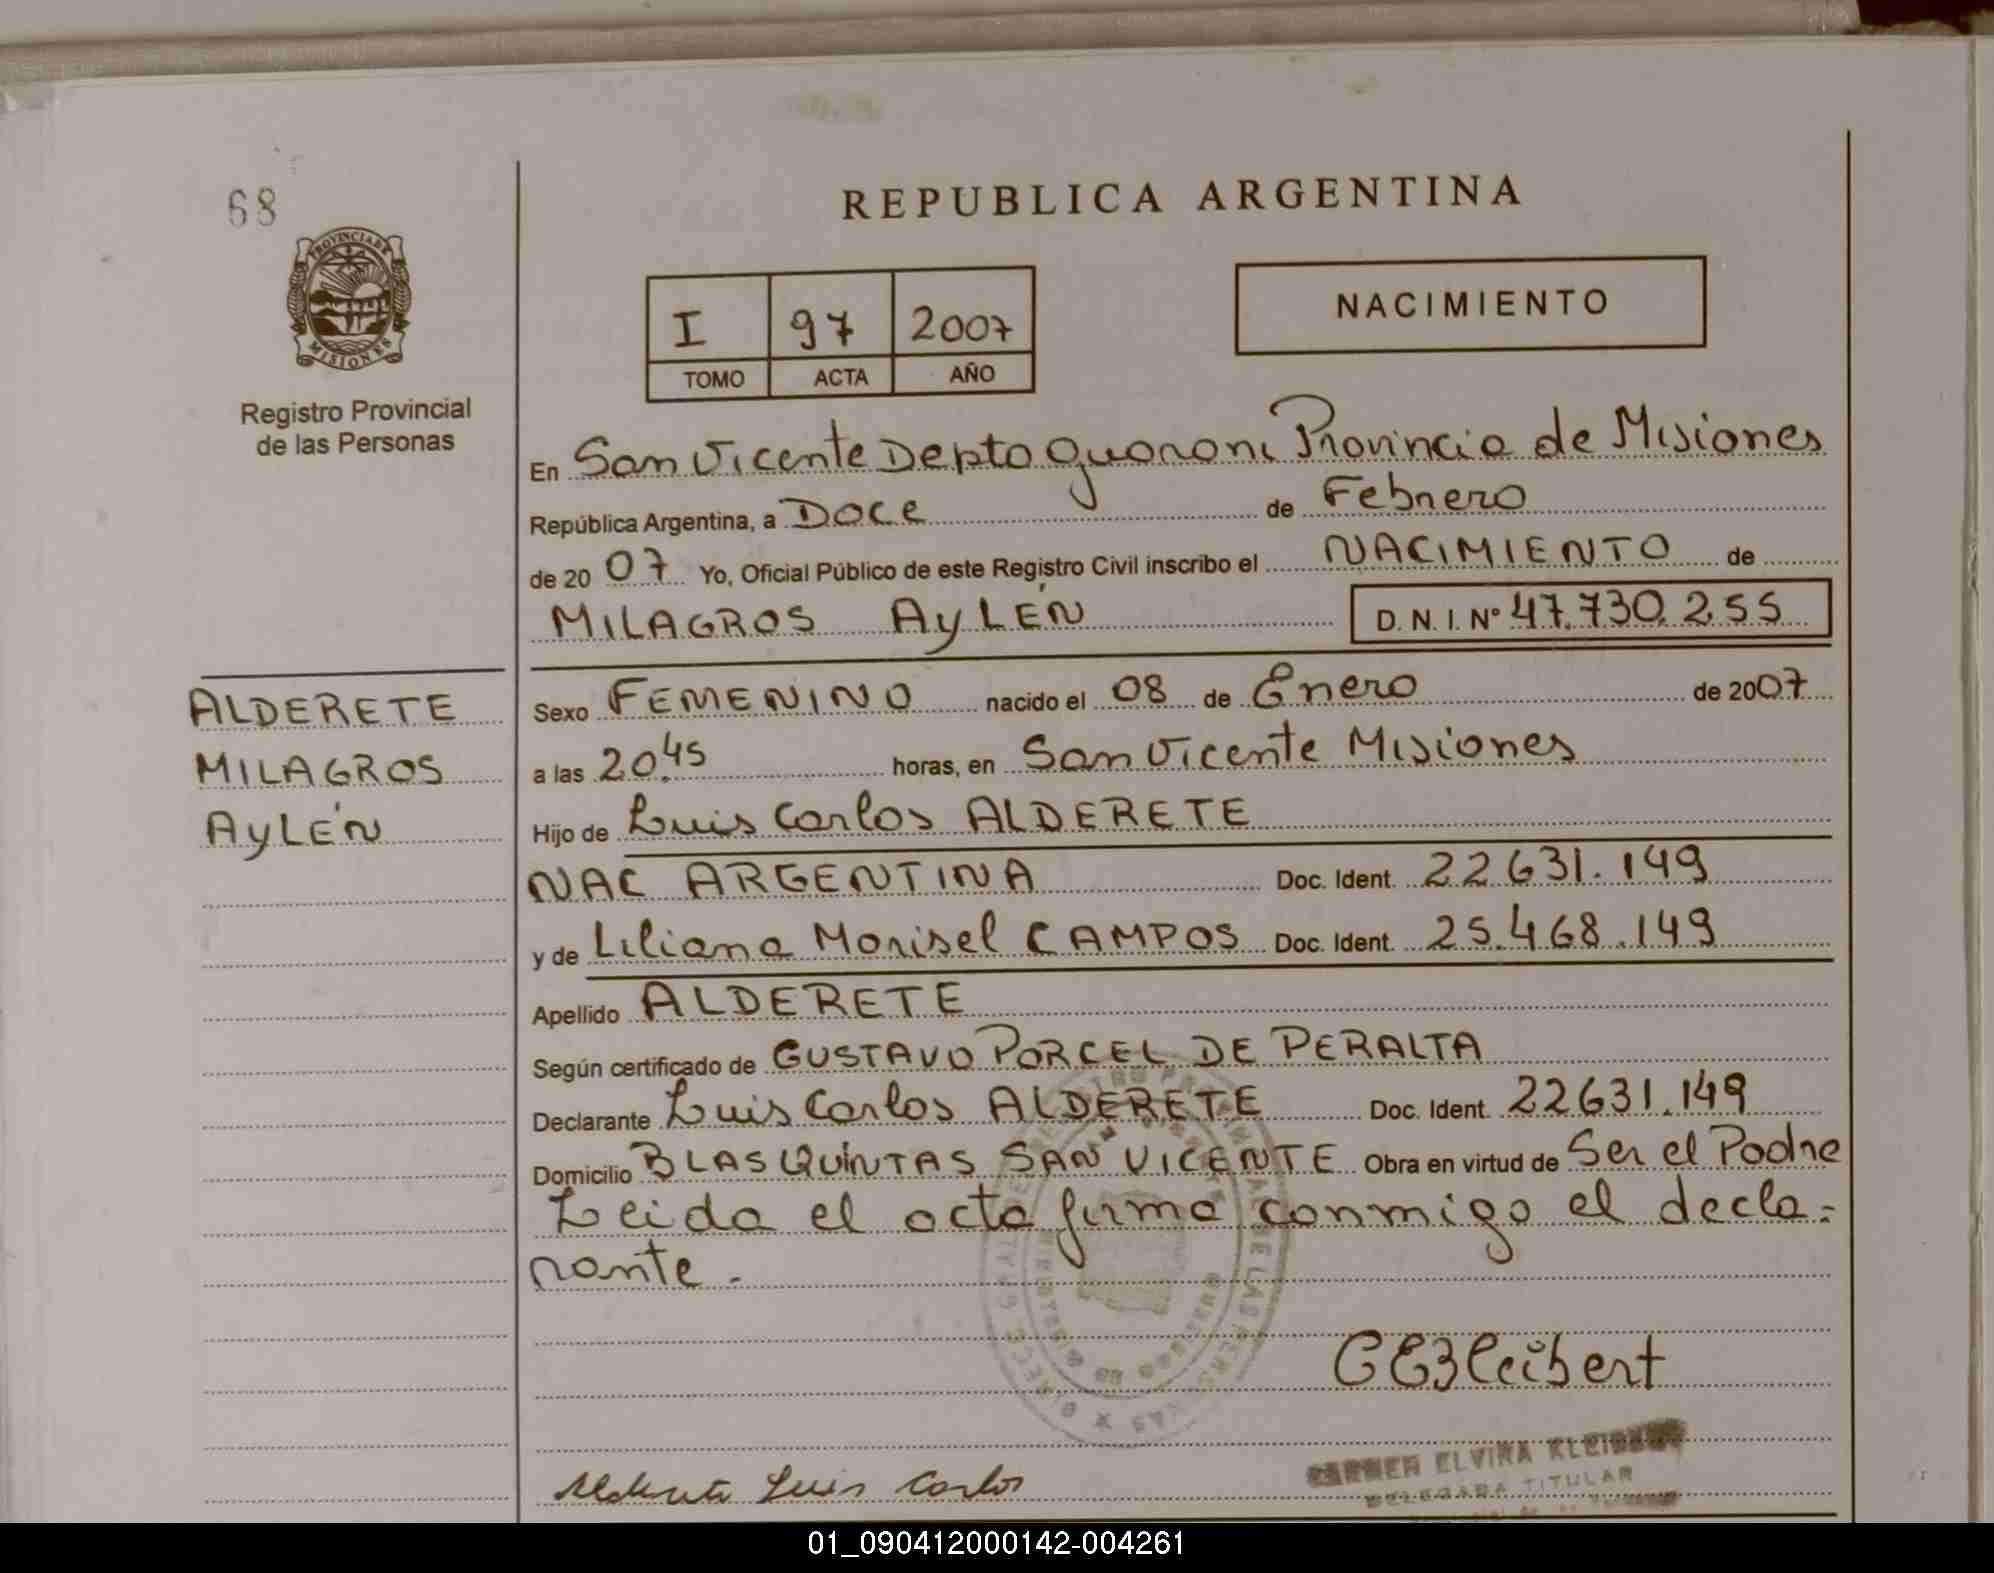 68
REPUBLICA ARGENTINA
PROVINCIA DE
MISIONES
Registro Provincial
de las Personas
I 97 2007
TOMO ACTA AÑO
NACIMIENTO
En San Vicente Depto Guarani Provincia de Misiones
República Argentina, a Doce de Febrero
de 20 07 Yo, Oficial Público de este Registro Civil inscribo el NACIMIENTO de
MILAGROS AyLÉN D. N. I. Nº 47.730.255
ALDERETE
MILAGROS
AyLÉN
Sexo FEMENINO nacido el 08 de Enero de 2007
a las 20.45 horas, en San Vicente Misiones
Hijo de Luis Carlos ALDERETE
NAC ARGENTINA Doc. Ident. 22631.149
y de Liliana Marisel CAMPOS Doc. Ident. 25.468.149
Apellido ALDERETE
Según certificado de GUSTAVO PORCEL DE PERALTA
Declarante Luis Carlos ALDERETE Doc. Ident. 22631.149
Domicilio BLAS QUINTAS SAN VICENTE Obra en virtud de Ser el Padre
Leida el acta firma conmigo el decla-
rante.
CEKleibert
Alderete Luis Carlos
CARMEN ELVIRA
DELEGADA TITULAR
01_090412000142-004261